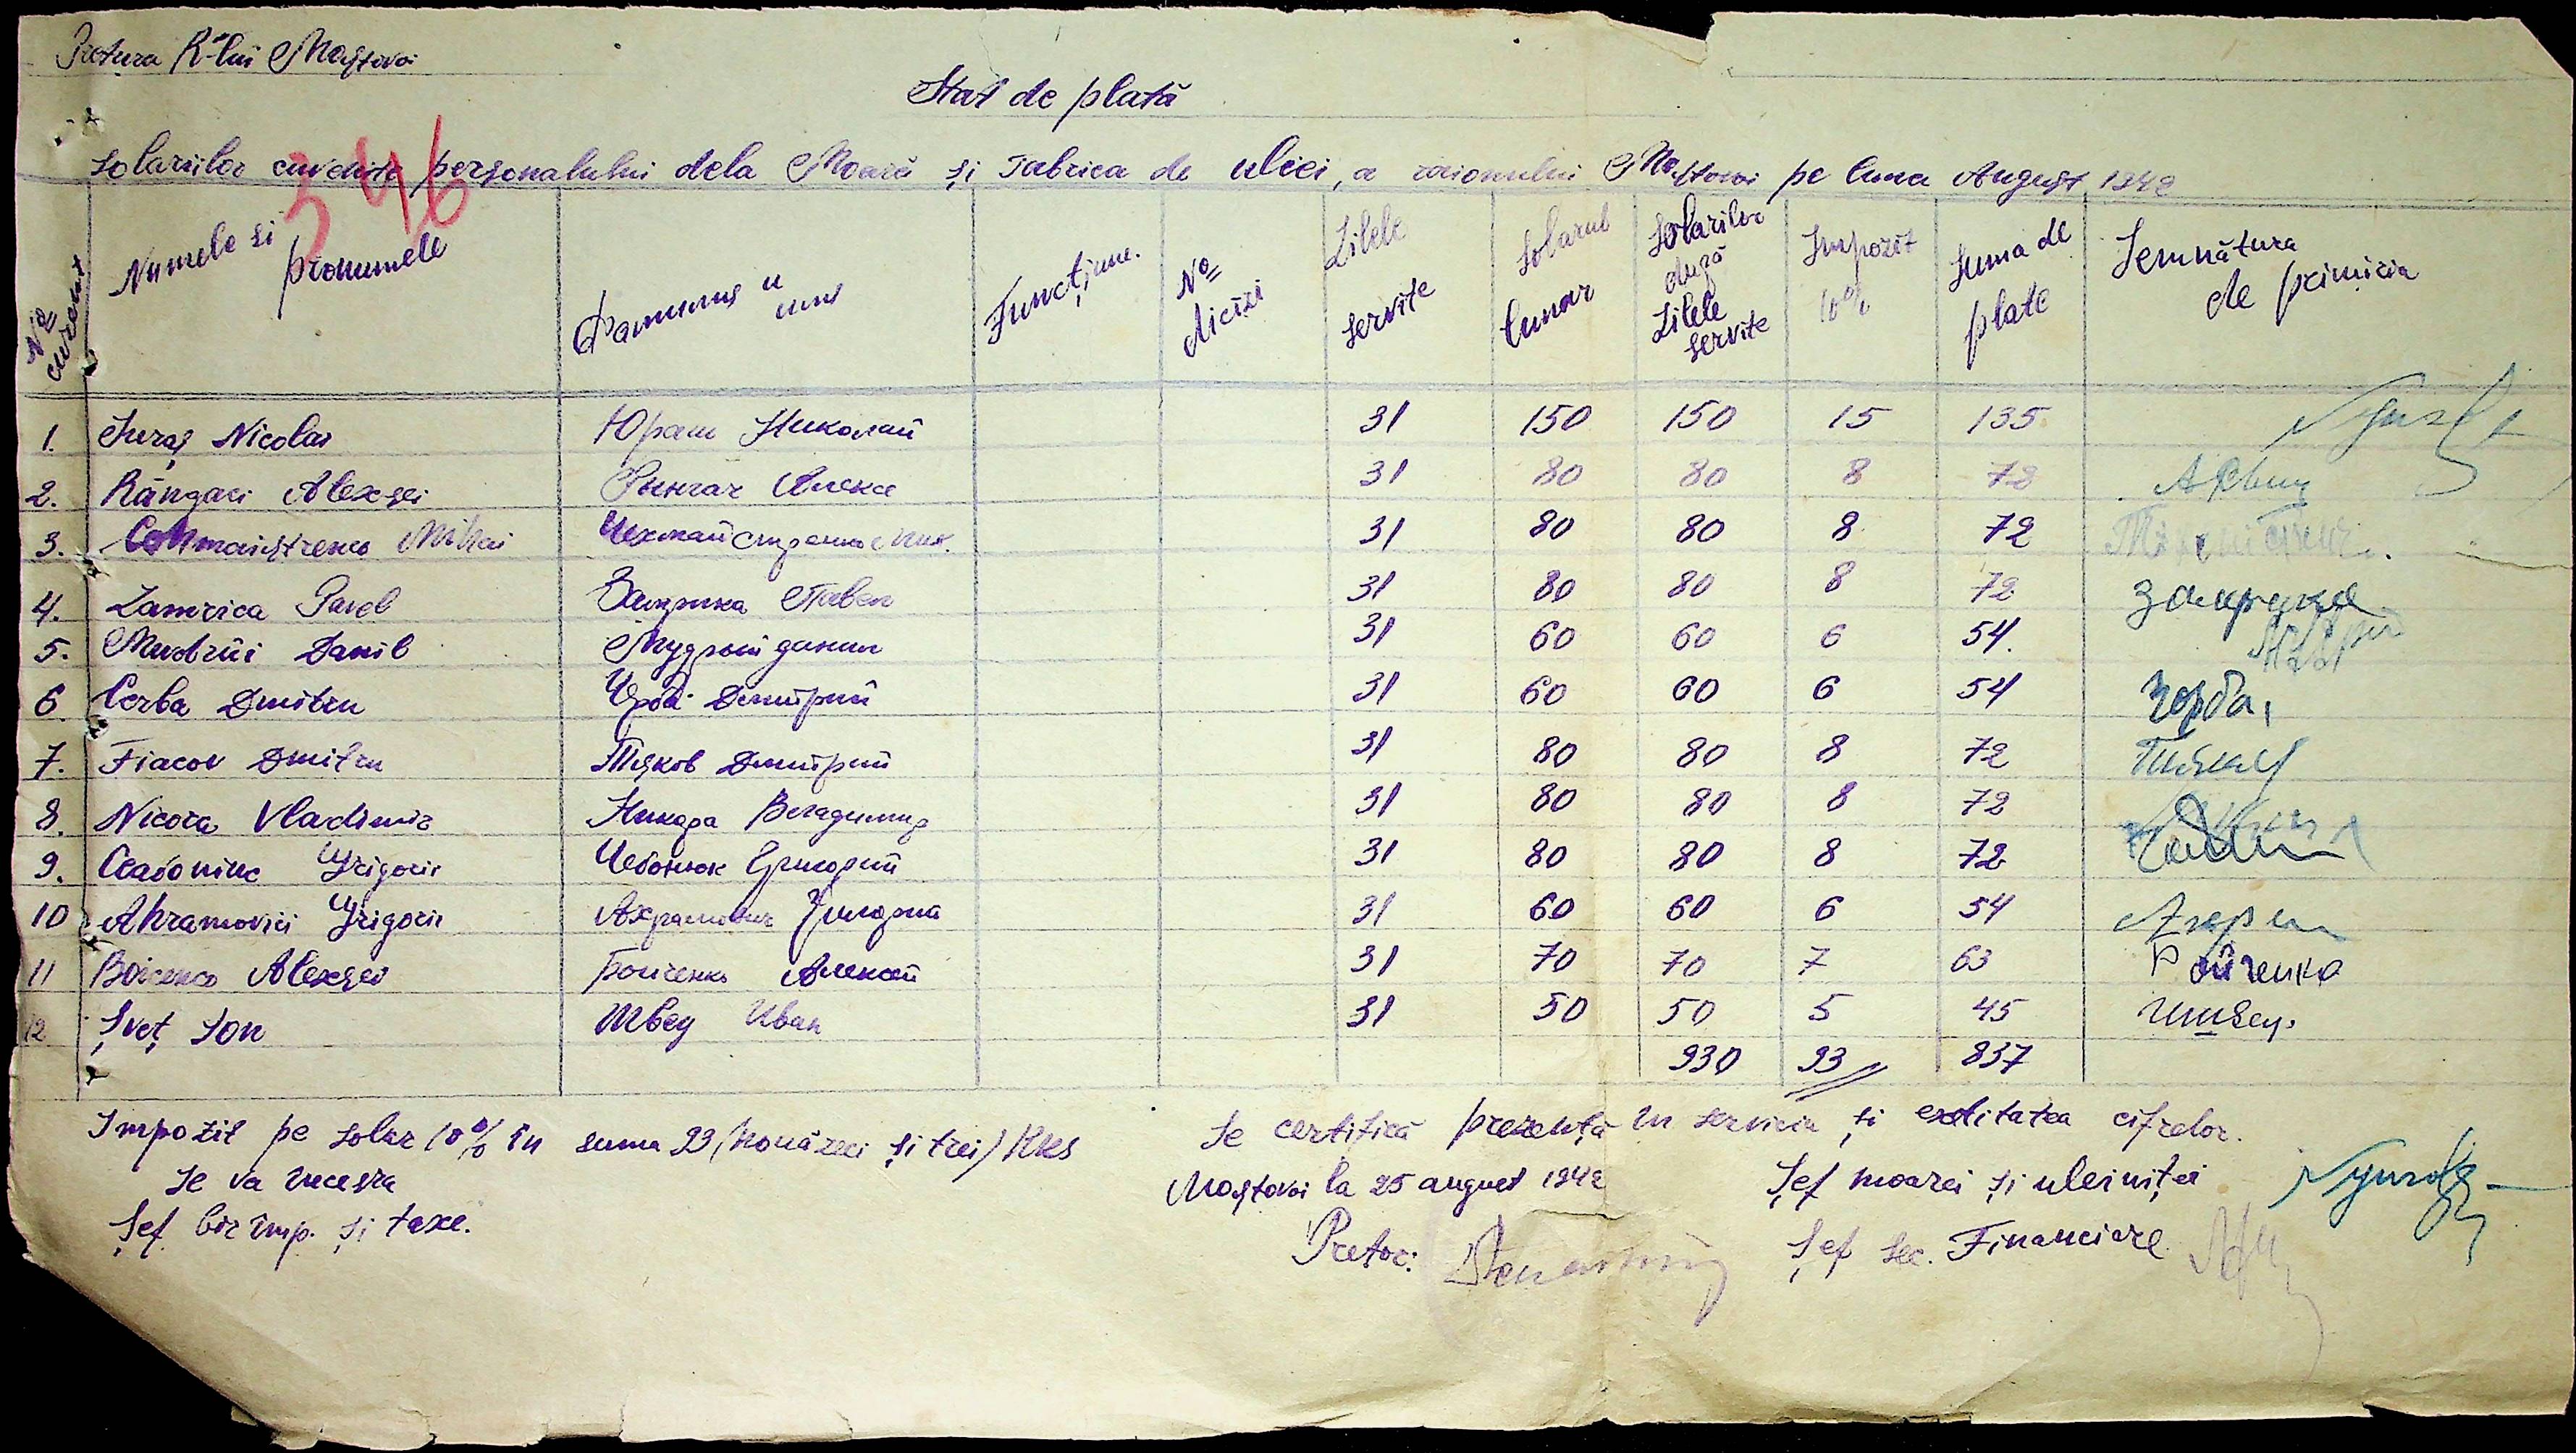 Pretura R-lui Mostovoi
Stat de plată
346
solariilor cuvenite personalului dela Moară și fabrica de uliei, a raionului Mostovoi pe luna August 1942
No curent | Numele si pronumele | Фамилия и имя | Funcțiune. | No dicizi | Zilele servite | Solarul lunar | Solarilor după zilele servite | Impozit 10% | Suma de plate | Semnătura de primiria
1. Juraș Nicolai Юраш Николай 31 150 150 15 135
2. Rângaci Alexsei Рынгач Алекс 31 80 80 8 72
3. Cehmaistrenco Mihai Чехмайстренко Мих. 31 80 80 8 72
4. Zamrica Pavel Замрика Павел 31 80 80 8 72 Замрика
5. Mudrîi Danil Мудрый Данил 31 60 60 6 54.
6 Cerba Dmitru Черба Дмитрий 31 60 60 6 54 Чорба,
7. Tiacov Dmitru Тяков Дмитрий 31 80 80 8 72
8. Nicora Vladimir Никора Владимир 31 80 80 8 72
9. Ceaboniuc Grigorii Чебонюк Григорий 31 80 80 8 72
10 Ahramovici Grigorii Ахрамович Григорий 31 60 60 6 54
11 Boicenco Alexsei Бойченко Алексей 31 70 70 7 63 Бойченко
12 Șveț Ion Швец Иван 31 50 50 5 45
930 93 837
Impozit pe solar 10% în suma 93 (nouăzeci și trei) RKS
se va încasa
Șef. bir imp. și taxe.
Se certifică prezența în serviciu și exatitatea cifrelor.
Mostovoi la 25 august 1942
Șef moarei și uleiniței
Pretor:
Șef sec. Financiare.